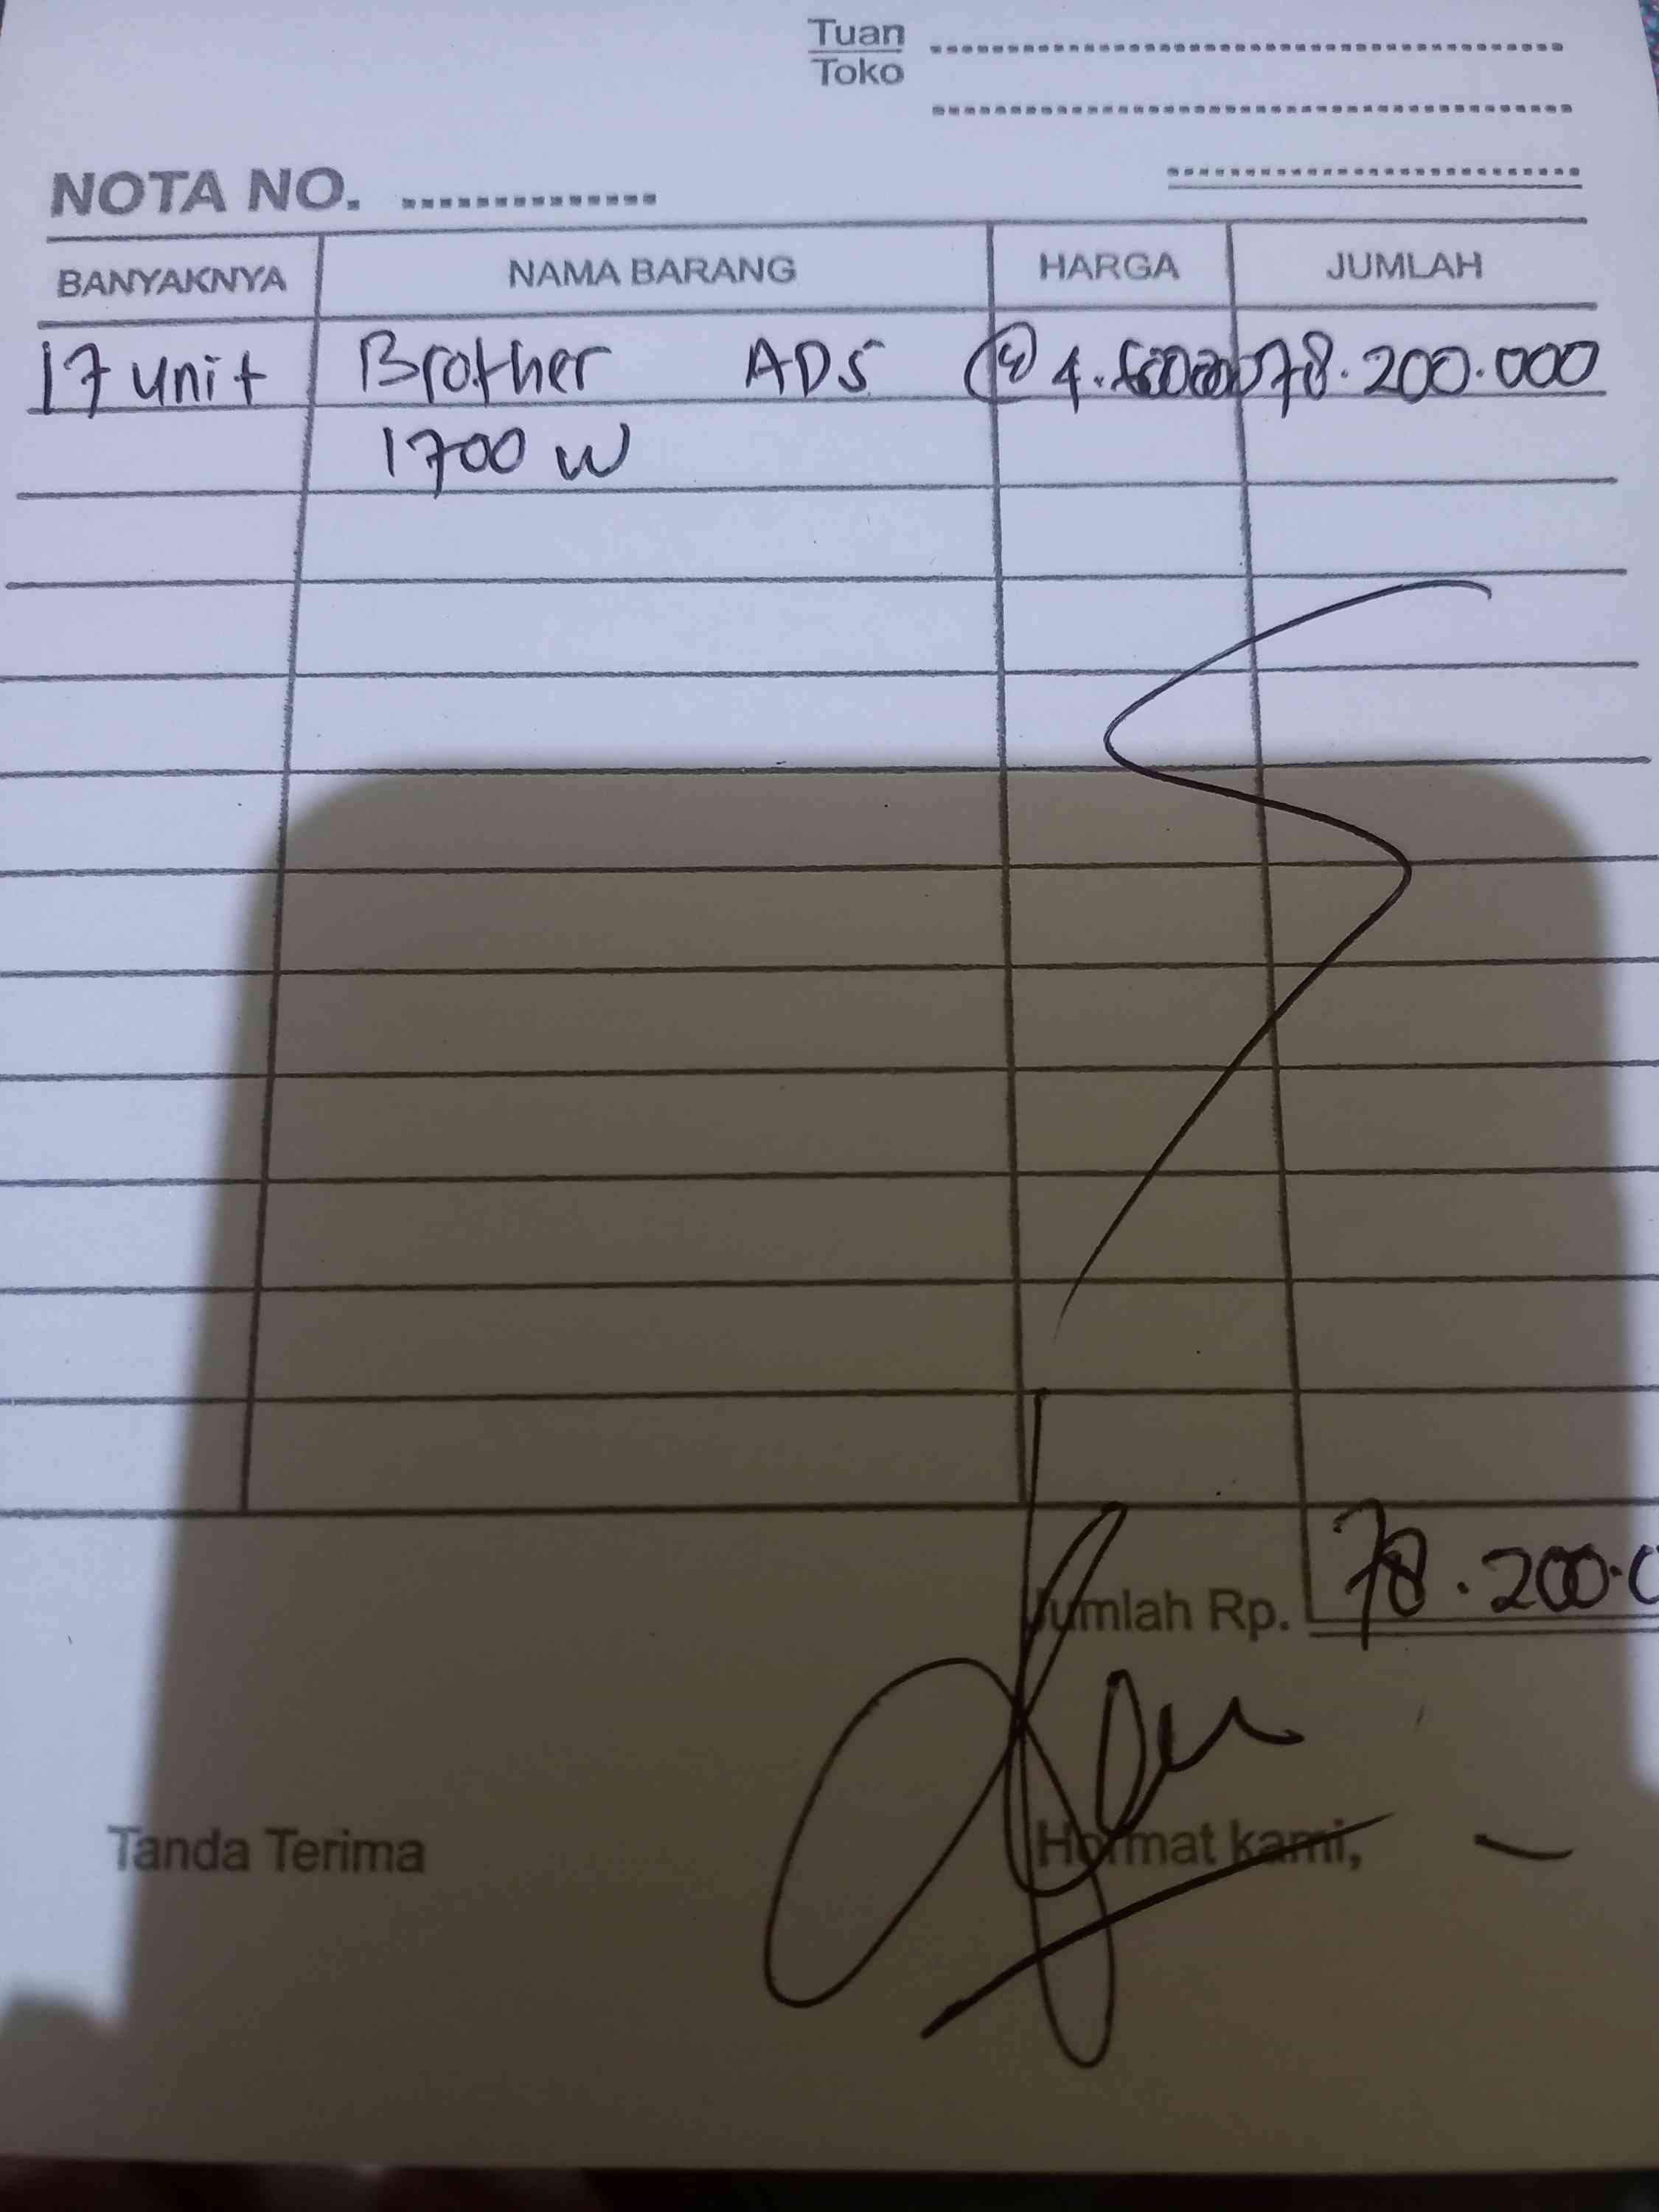 Tuan
Toko
NOTA NO.
BANYAKNYA NAMA BARANG HARGA JUMLAH
17 unit Brother ADS @ 78.200.000
1700 W
Jumlah Rp. 78.200.0
Tanda Terima Hormat kami,